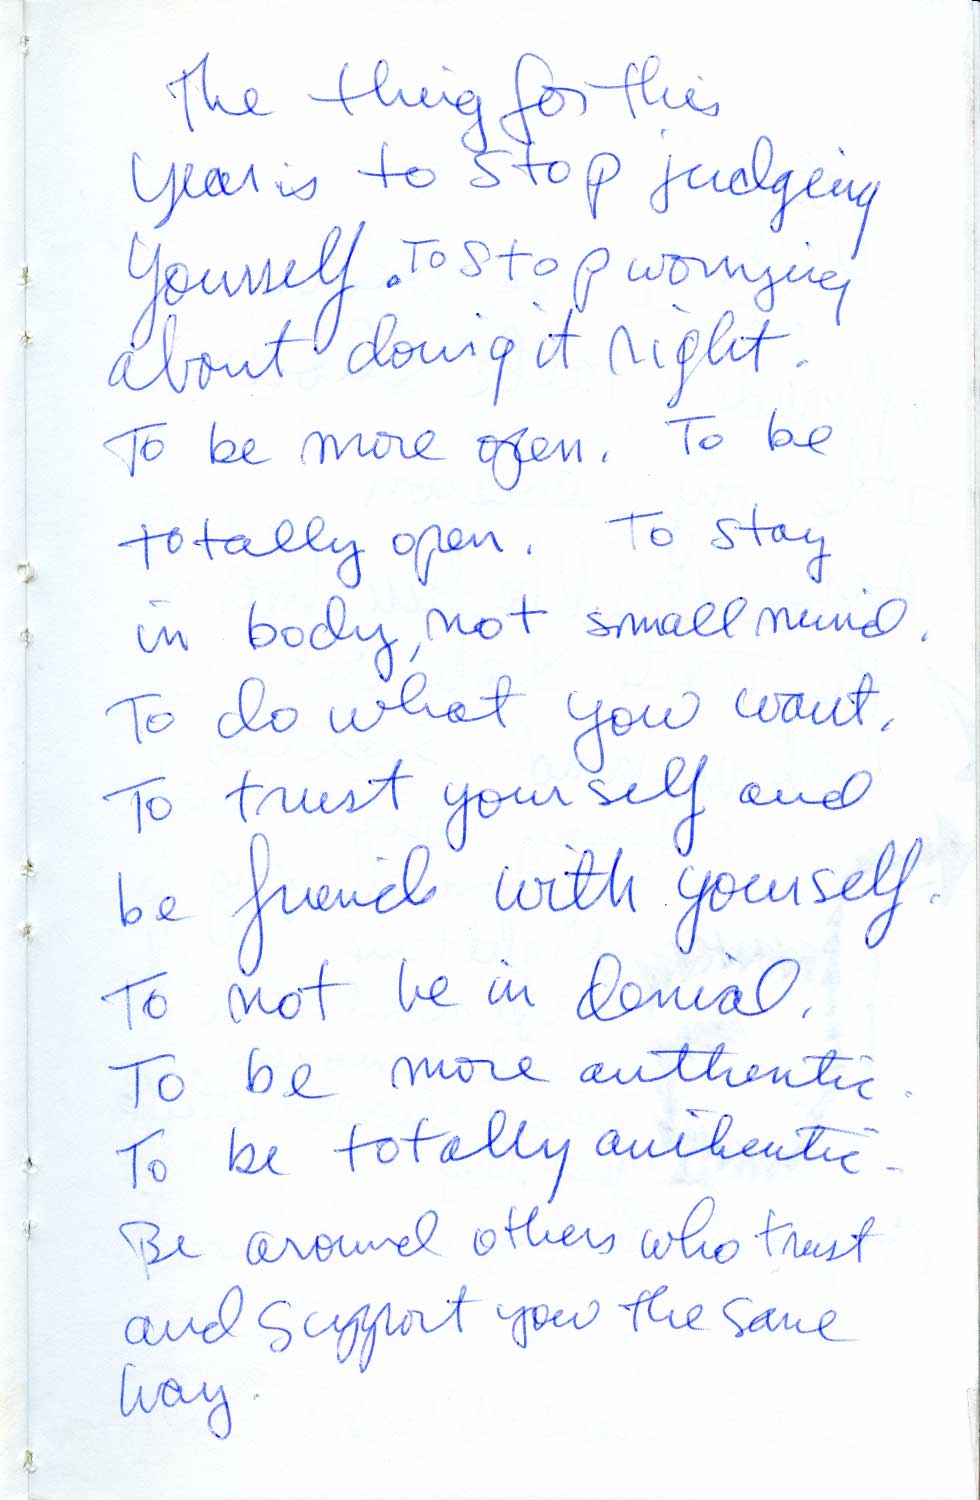 The thing for this
Year is to stop judging
Yourself. To stop worrying
about doing it right.
To be more open. To be
totally open. To stay
in body, not small mind.
To do what you want.
To trust yourself and
be friends with yourself.
To not be in denial.
To be more authentic.
To be totally authentic.
Be around others who trust
and support you the same
way.